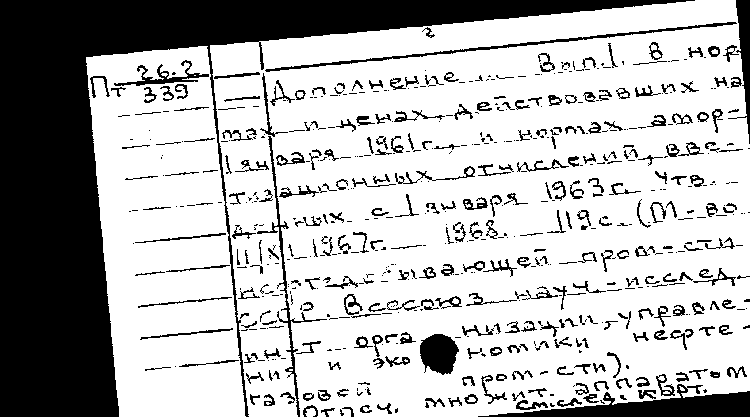 2
Пт 26.2
339
— Дополнение ... Вып.1. В нор-
мах и ценах, действовавших на
1 января 1961г., и нормах амор-
тизационных отчислений, вве-
денных с 1 января 1963г. Утв.
11/XI 1967г. 1968. 119с. (М-во
нефтедобывающей пром-сти
СССР. Всесоюз. науч.-исслед.
ин-т организации, управле-
ния и экономики нефте-
газовой пром-сти).
Отпеч. множит. аппаратом
см. след. карт.